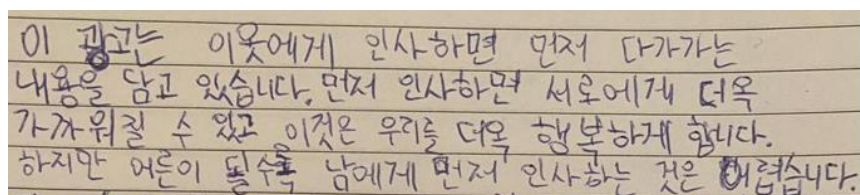 이 광고는 이웃에게 인사하면 먼저 다가가는
내용을 담고 있습니다. 먼저 인사하면 서로에게 더욱
가까워질 수 있고 이것은 우리를 더욱 행복하게 합니다.
하지만 어른이 될수록 남에게 먼저 인사하는 것은 어렵습니다